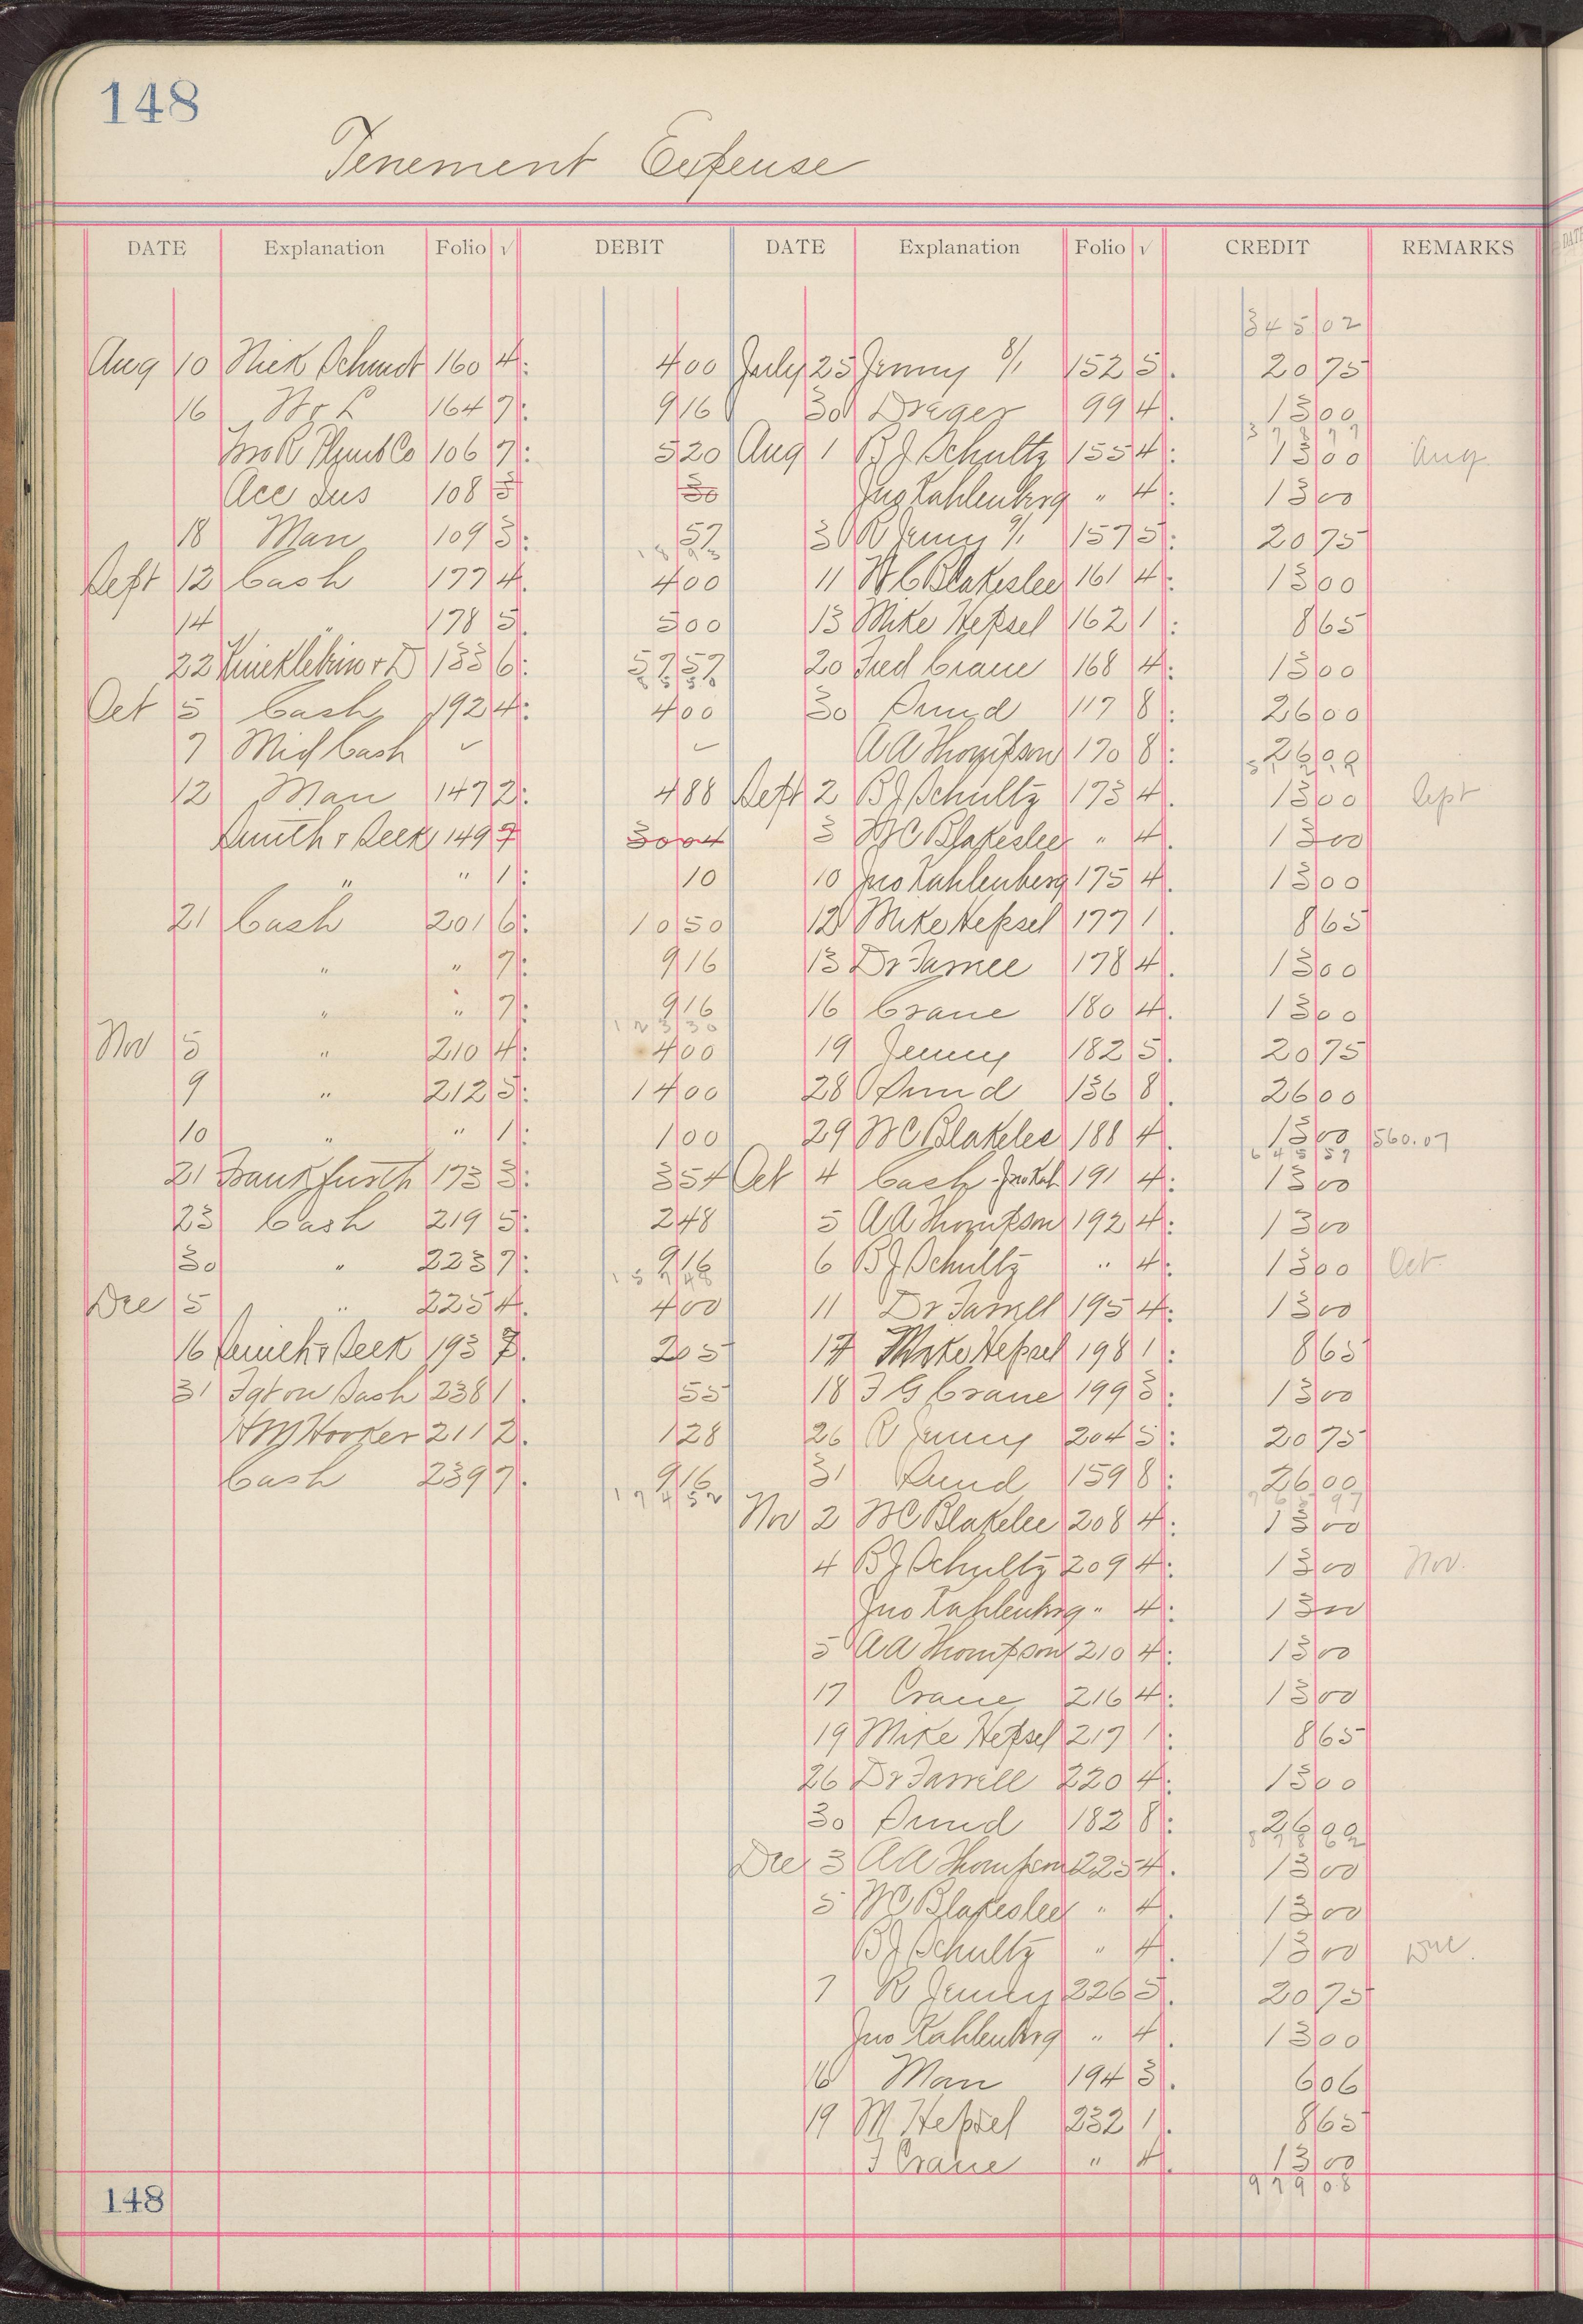 148
Tenement Expense
DATE Explanation Folio √ DEBIT DATE Explanation Folio √ CREDIT REMARKS
345 02
Aug 10 Nick Schmdt 160 4: 4 00 July 25 Jenny 8/1 152 5. 20 75
16 W & L 164 7: 9 16 30 Drager 99 4. 13 00
378 77
Plumb Co 106 7: 5 20 Aug 1 B J Schultz 155 4: 13 00 Aug
Acc Sus 108 3 30 Jno Kahlenbrg " 4: 13 00
18 Man 109 3: 57 30 R Jenny 9/1 157 5: 20 75
18 93
Sept 12 Cash 177 4. 4 00 11 W C Blakeslee 161 4: 13 00
14 " 178 5. 5 00 13 Mike Hepsel 162 1: 8 65
22 133 6: 57 57 20 Fred Crane 168 4: 13 00
85 50
Oct 5 Cash 192 4: 4 00 30 Sund 117 8: 26 00
7 Mid Cash ✓ ✓ A A Thompson 170 8: 26 00
12 Man 147 2: 4 88 Sept 2 B J Schultz 173 4. 13 00 Sept
Smith & Seek 149 7 30 04 3 W C Blakeslee " 4. 13 00
" " 1: 10 10 Jno Kahlenberg 175 4. 13 00
21 Cash 201 6: 10 50 12 Mike Hepsel 177 1. 8 65
" " 7: 9 16 13 Dr Farrell 178 4. 13 00
" " 7: 9 16 16 Crane 180 4. 13 00
123 30
Nov 5 " 210 4: 4 00 19 Jenny 182 5. 20 75
9 " 212 5: 14 00 28 Sund 136 8. 26 00
10 " " 1: 1 00 29 W C Blakelee 188 4. 13 00 560.07
645 57
21 Frankfurth 173 3: 3 54 Oct 4 Cash Jno Kah 191 4: 13 00
23 Cash 219 5: 2 48 5 A A Thompson 192 4: 13 00
30 " 223 7: 9 16 6 B J Schultz " 4: 13 00 Oct
157 48
Dec 5 " 225 4. 4 00 11 Dr Farrell 195 4: 13 00
16 Smith & Seek 193 7. 2 05 17 Mike Hepsel 198 1: 8 65
31 Sash 238 1. 55 18 F G Crane 199 3: 13 00
H M Hooker 211 2. 1 28 26 R Jenny 204 5: 20 75
Cash 239 7. 9 16 31 Sund 159 8: 26 00
174 52 765 97
Nov 2 W C Blakelee 208 4: 13 00
4 B J Schultz 209 4: 13 00 Nov.
Jno Kahlenbrg " 4: 13 00
5 A A Thompson 210 4: 13 00
17 Crane 216 4: 13 00
19 Mike Hepsel 217 1: 8 65
26 Dr Farrell 220 4: 13 00
30 Sund 182 8: 26 00
878 62
Dec 3 A A Thompson 225 4. 13 00
5 W C Blakeslee " 4. 13 00
B J Schultz " 4. 13 00 Dec.
7 R Jenny 226 5. 20 75
Jno Kahlenbrg " 4. 13 00
16 Man 194 3. 6 06
19 M Hepsel 232 1. 8 65
F Crane " 4. 13 00
979 08
148